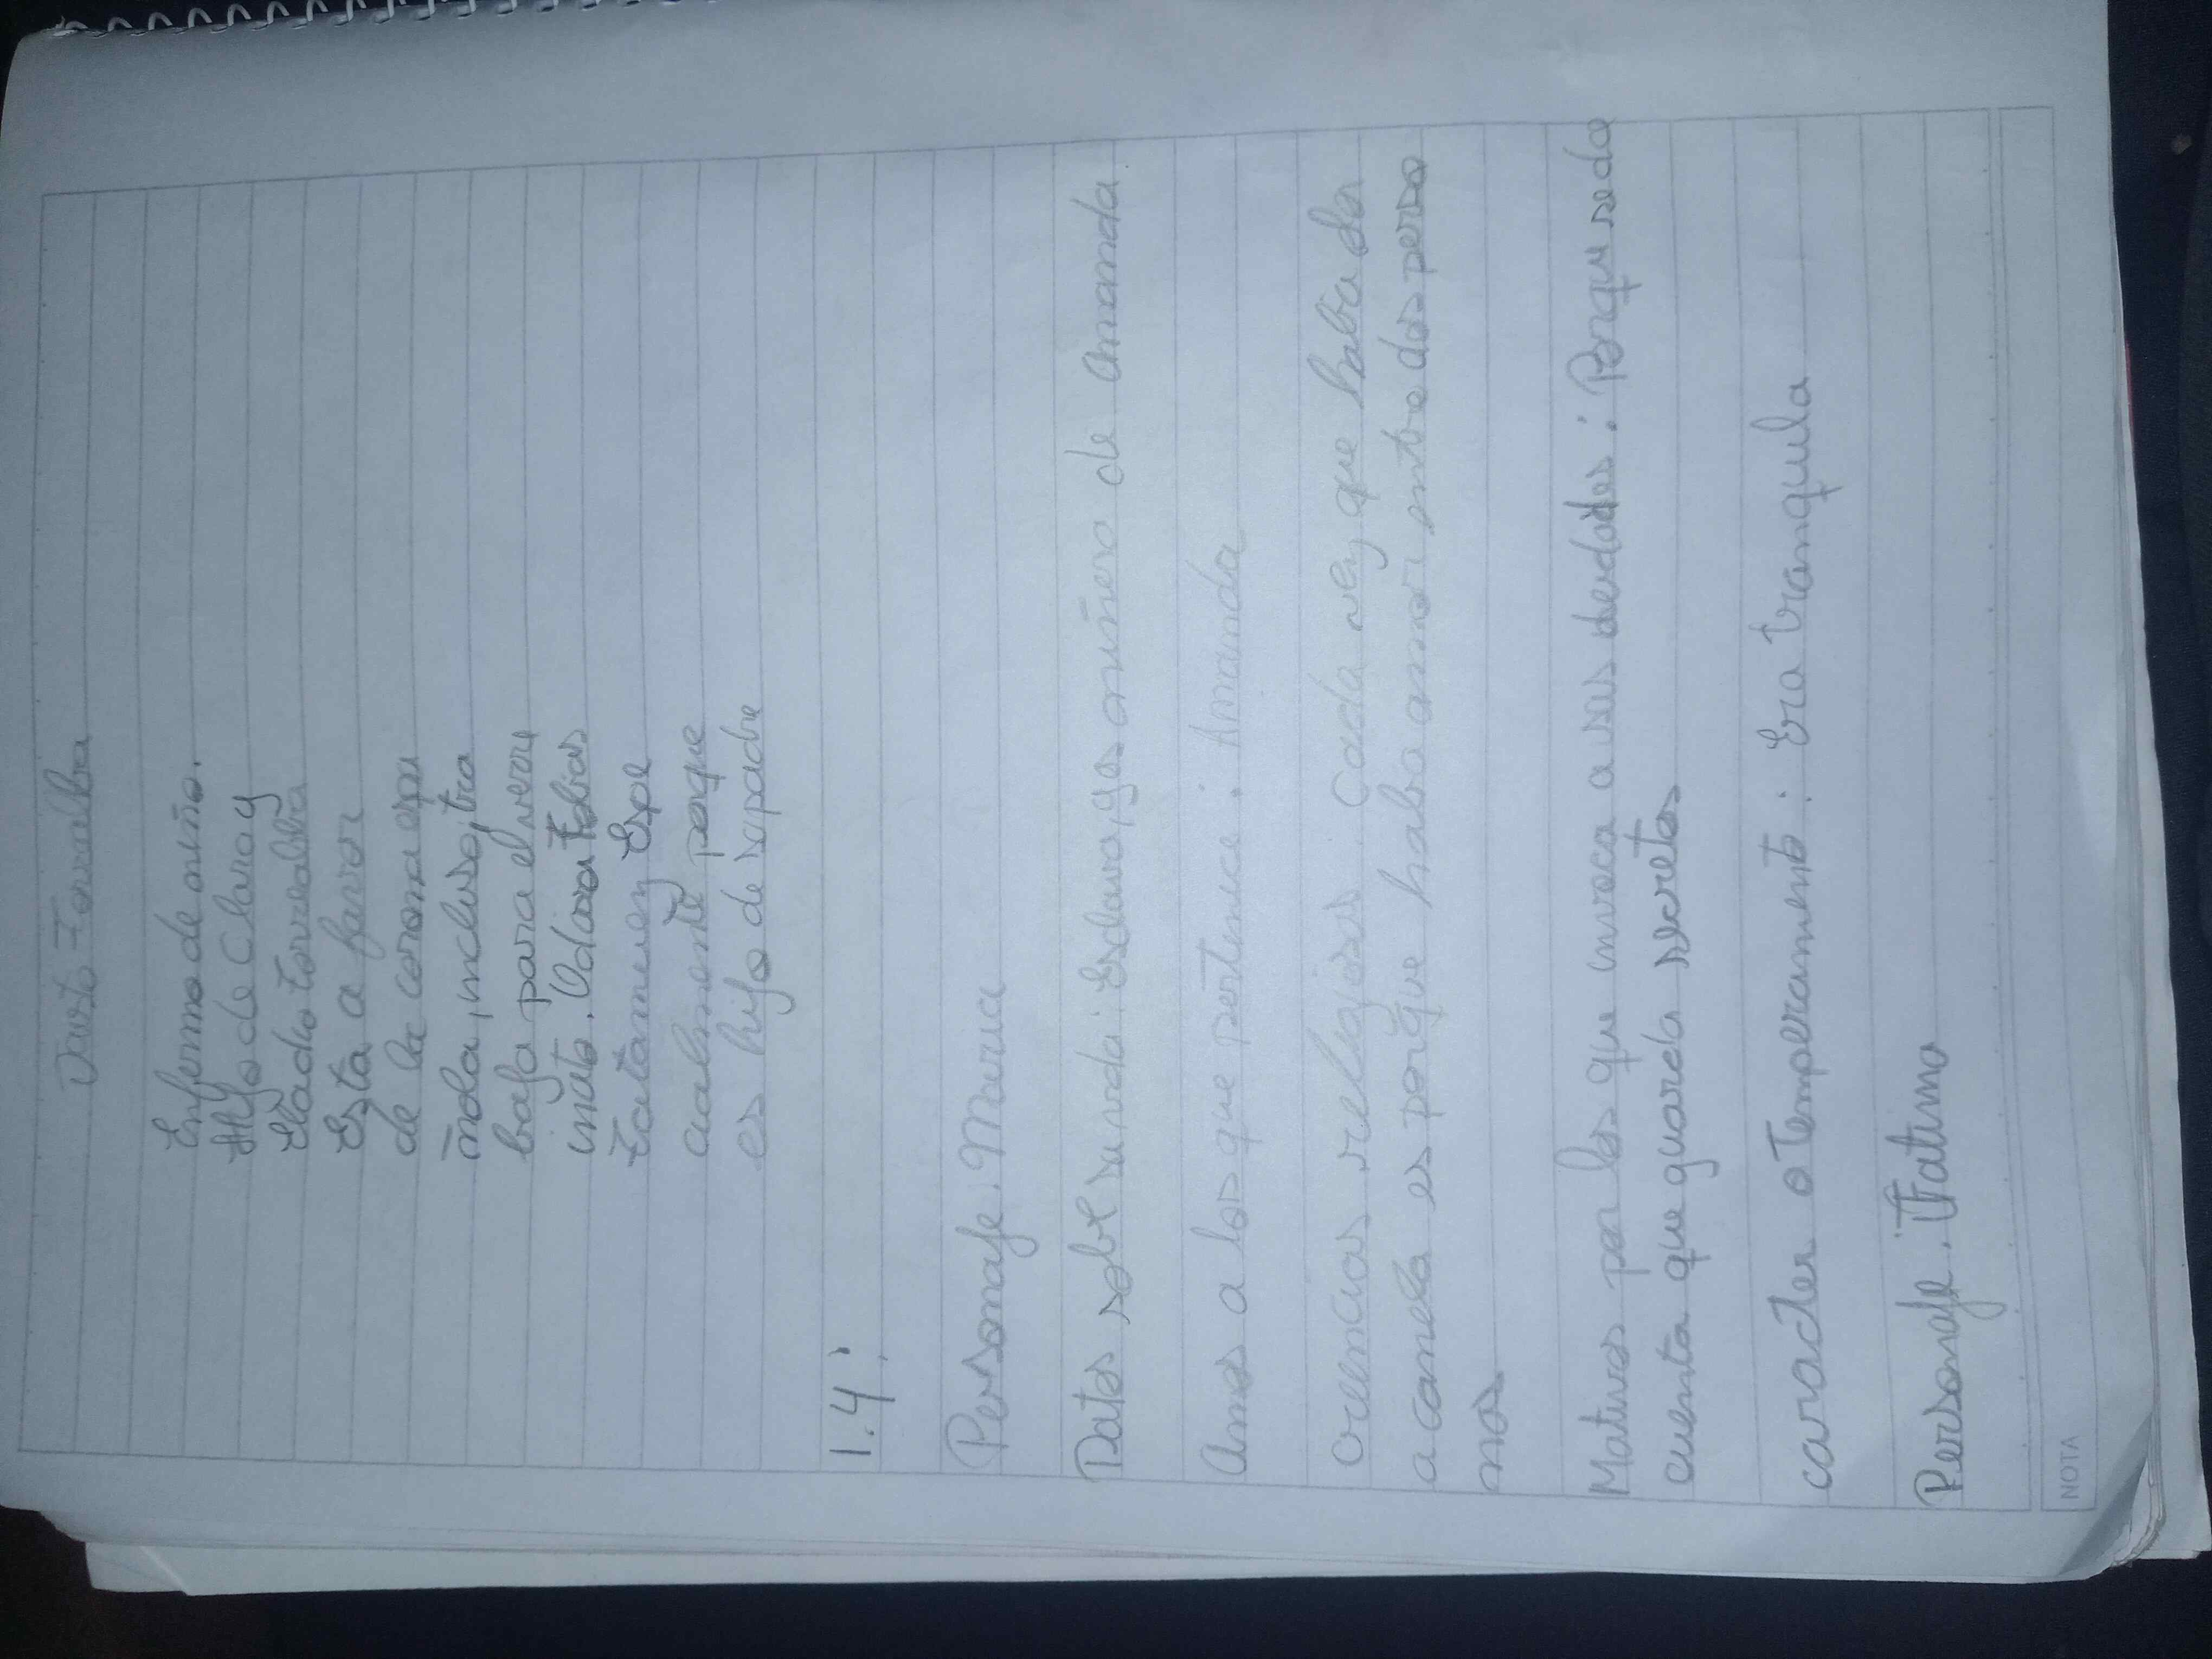 Dario Torralba
Enfermo de niño.
Hijo de Clara y
Eladio torralba
Esta a favor
de la corona espa
ñola, incluso, tra
baja para el verre
inato. Odiosa Tobias
Fatamuez Espe
cialmente poque
es hijo de su padre
1.4:
Personaje. Maria
Datos sobre su vida: Esclava, y es niñera de Amanda
Amos a los que pertenece: Amanda
creencias religiosas: Cada vez que habia dor
a canela es porque habia amor entre dos perso
nas
Motivos por los que invoca a sus deidades: Porque se da
cuenta que guarda secretos
caracter o temperamento: Era tranquila
Personaje. Fatima
NOTA